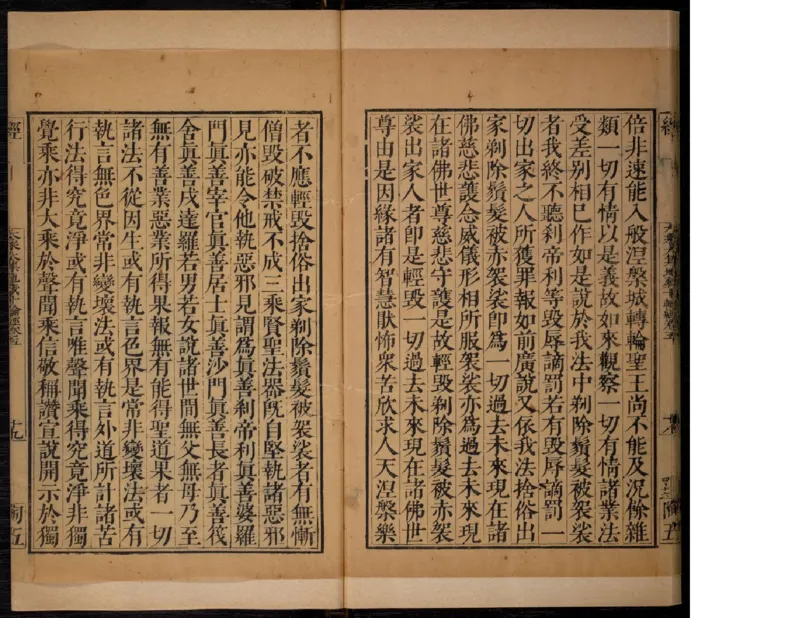 倍非速能入般涅槃城轉輪聖王尚不能及況餘雜
類一切有情以是義故如來觀察一切有情諸業法
受差别相已作如是說於我法中剃除鬚髮被袈裟
者我終不聽刹帝利等毀辱謫罰若有毀辱謫罰一
切出家之人所獲罪報如前廣說又依我法捨俗出
家剃除鬚髮被赤袈裟卽爲一切過去未來現在諸
佛慈悲護念威儀形相所服袈裟亦爲過去未來現
在諸佛世尊慈悲守護是故輕毀剃除鬚髮被赤袈
裟出家人者卽是輕毀一切過去未來現在諸佛世
尊由是因緣諸有智慧猒怖衆苦欣求人天涅槃樂
者不應輕毀捨俗出家剃除鬚髮被袈裟者有無慚
僧毀破禁戒不成三乘賢聖法器旣自堅執諸惡邪
見亦能令他執惡邪見謂爲眞善刹帝利眞善婆羅
門眞善宰官眞善居士眞善沙門眞善長者眞善筏
舍眞善戍達羅若男若女說諸世間無父無母乃至
無有善業惡業所得果報無有能得聖道果者一切
諸法不從因生或有執言色界是常非變壞法或有
執言無色界常非變壞法或有執言外道所計諸苦
行法得究竟淨或有執言唯聲聞乘得究竟淨非獨
覺乘亦非大乘於聲聞乘信敬稱讚宣說開示於獨
經
十九